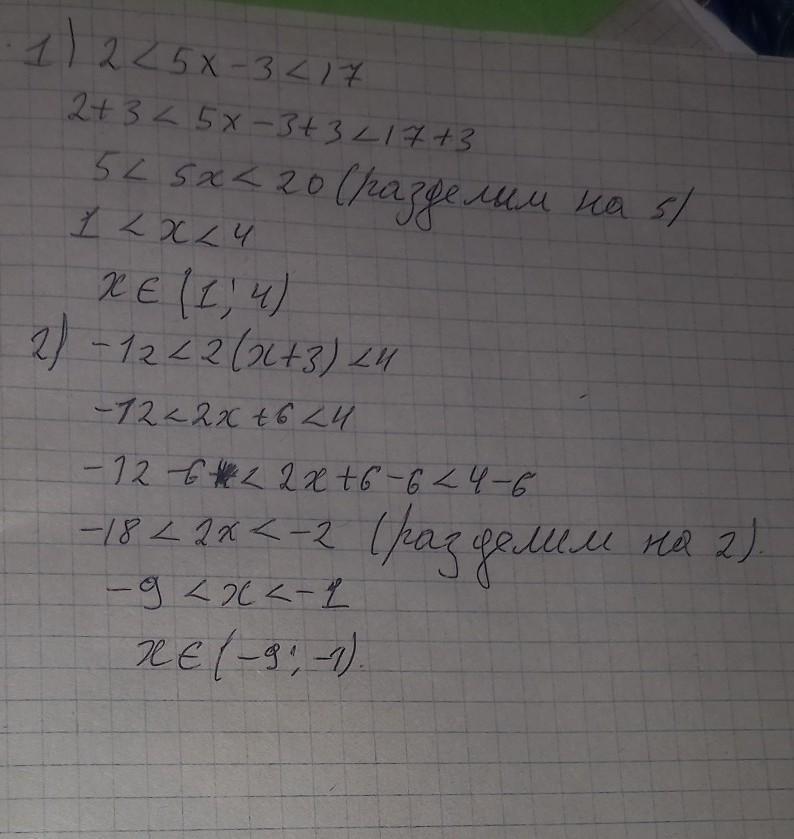 1) 2 < 5x - 3 < 17
2 + 3 < 5x - 3 + 3 < 17 + 3
5 < 5x < 20 (разделим на 5)
1 < x < 4
x ∈ (1; 4)
2) -12 < 2(x+3) < 4
-12 < 2x + 6 < 4
-12 - 6 < 2x + 6 - 6 < 4 - 6
-18 < 2x < -2 (разделим на 2).
-9 < x < -1
x ∈ (-9; -1).